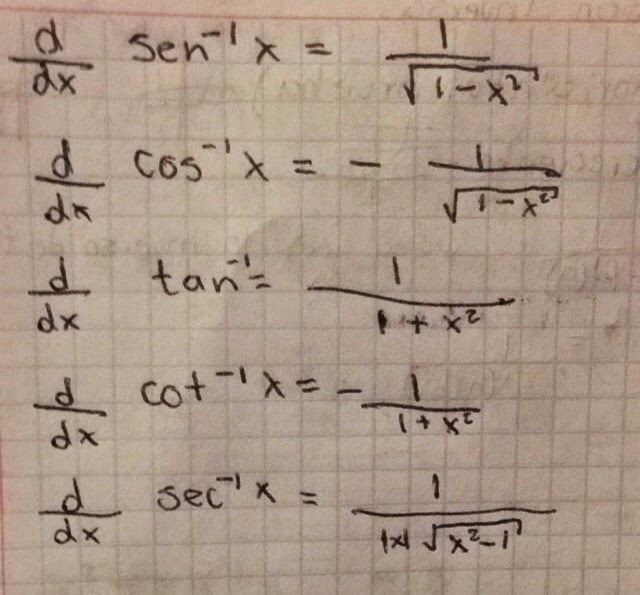 d/dx sen⁻¹ x = 1/√(1 - x²)
d/dx cos⁻¹ x = - 1/√(1 - x²)
d/dx tan⁻¹ = 1/(1 + x²)
d/dx cot⁻¹ x = - 1/(1 + x²)
d/dx sec⁻¹ x = 1/(|x| √(x² - 1))